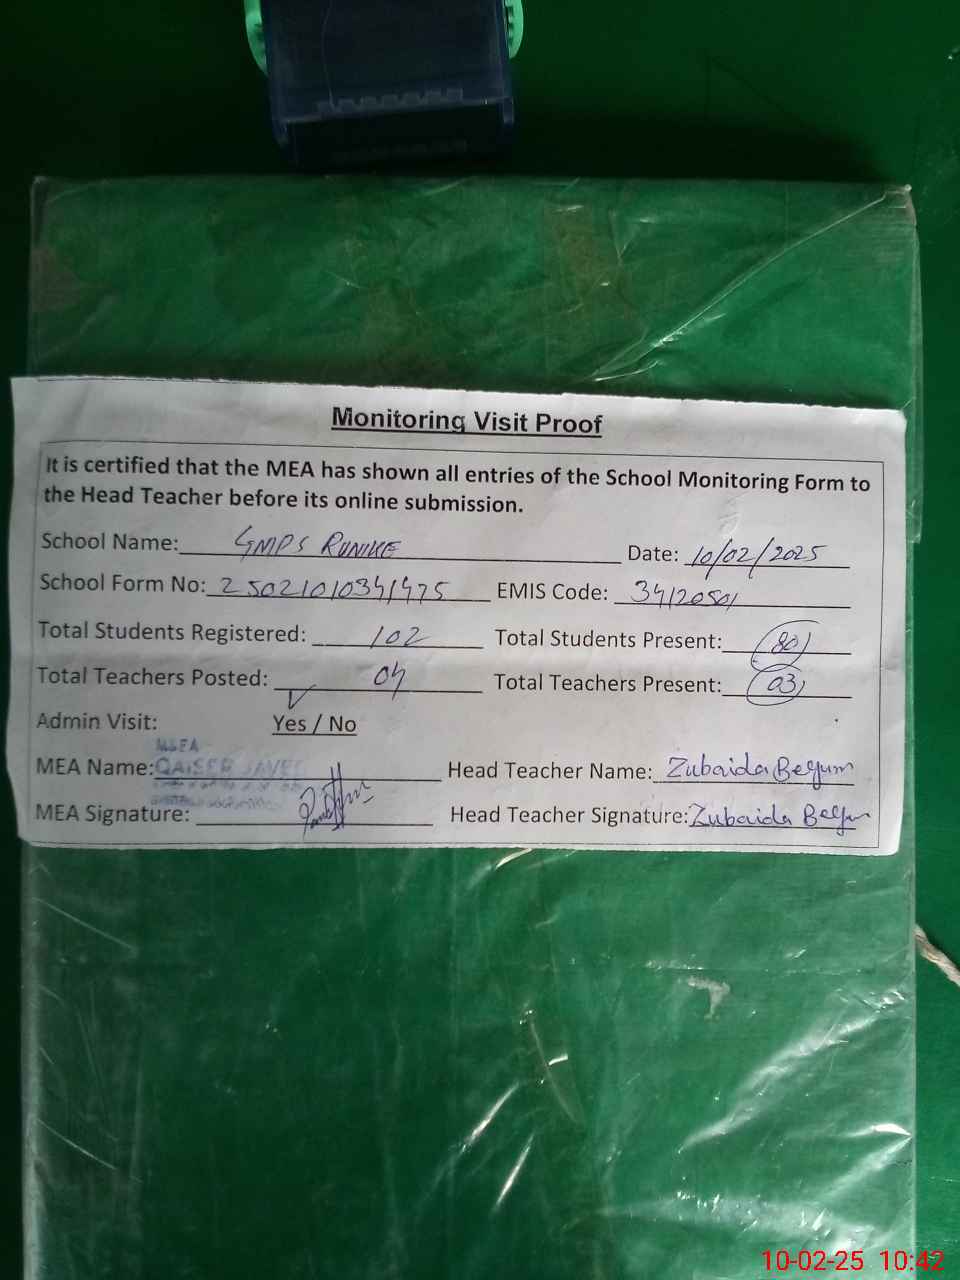 Monitoring Visit Proof
It is certified that the MEA has shown all entries of the School Monitoring Form to
the Head Teacher before its online submission.
School Name: GMPS RUNIKE Date: 10/02/2025
School Form No: 25021010341475 EMIS Code: 34120501
Total Students Registered: 102 Total Students Present: 80
Total Teachers Posted: 04 Total Teachers Present: 03
Admin Visit: Yes / No
M&EA
MEA Name: QAISER JAVED Head Teacher Name: Zubaida Begum
MEA Signature: Head Teacher Signature: Zubaida Begum
10-02-25 10:42